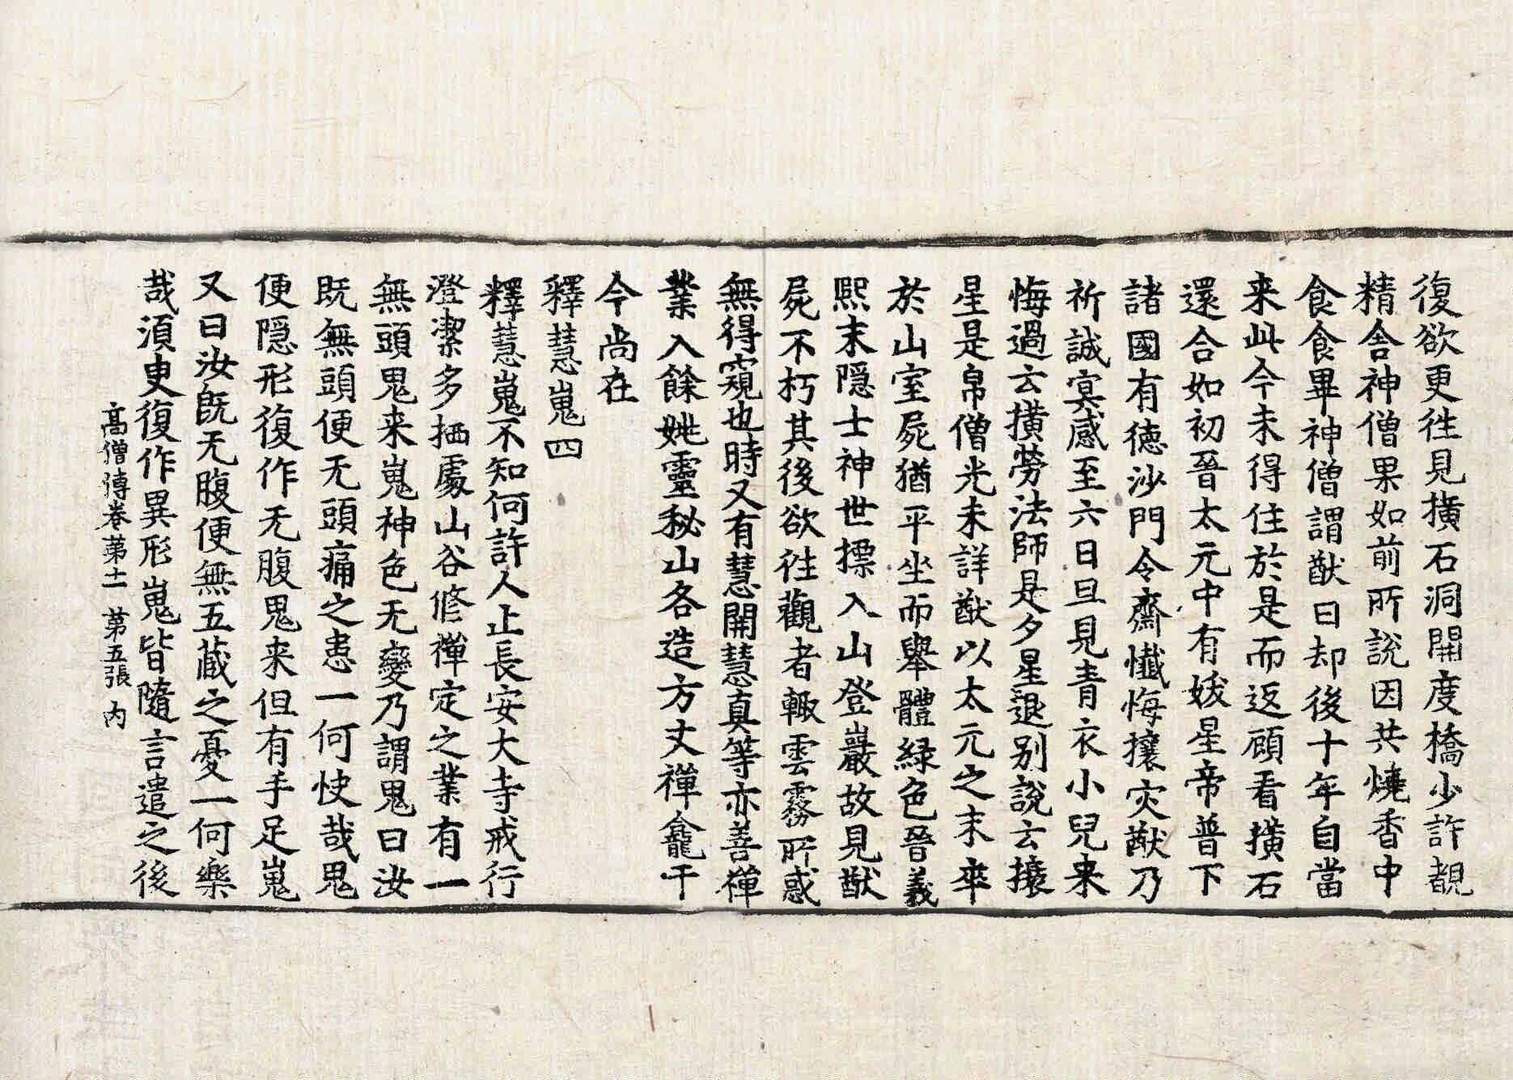 復欲更往見横石洞開度橋少許覩
精舍神僧果如前所說因共燒香中
食食畢神僧謂猷曰却後十年自當
来此今未得住於是而返顧看横石
還合如初晉太元中有妖星帝普下
諸國有德沙門令齋懺悔攘灾猷乃
祈誠冥感至六日旦見青衣小兒来
悔過云横勞法師是夕星退别說云攘
星是帛僧光未詳猷以太元之末卒
於山室屍猶平坐而舉體緑色晉義
熙末隱士神世標入山登巖故見猷
屍不朽其後欲往觀者輙雲霧所惑
無得窺也時又有慧開慧真等亦善禅
業入餘姚靈秘山各造方丈禅龕于
今尚在
釋慧嵬四
釋慧嵬不知何許人止長安大寺戒行
澄潔多栖處山谷修禅定之業有一
無頭鬼来嵬神色无變乃謂鬼曰汝
既無頭便无頭痛之患一何快哉鬼
便隱形復作无腹鬼来但有手足嵬
又曰汝既无腹便無五蔵之憂一何樂
哉須臾復作異形嵬皆隨言遣之後
高僧傳卷苐十一 苐五張 内